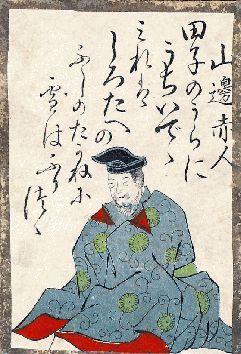 山邊赤人
田子のうらに
うちいでゝ
みれは
しろたへの
ふしのたかねに
雪はふりつゝ